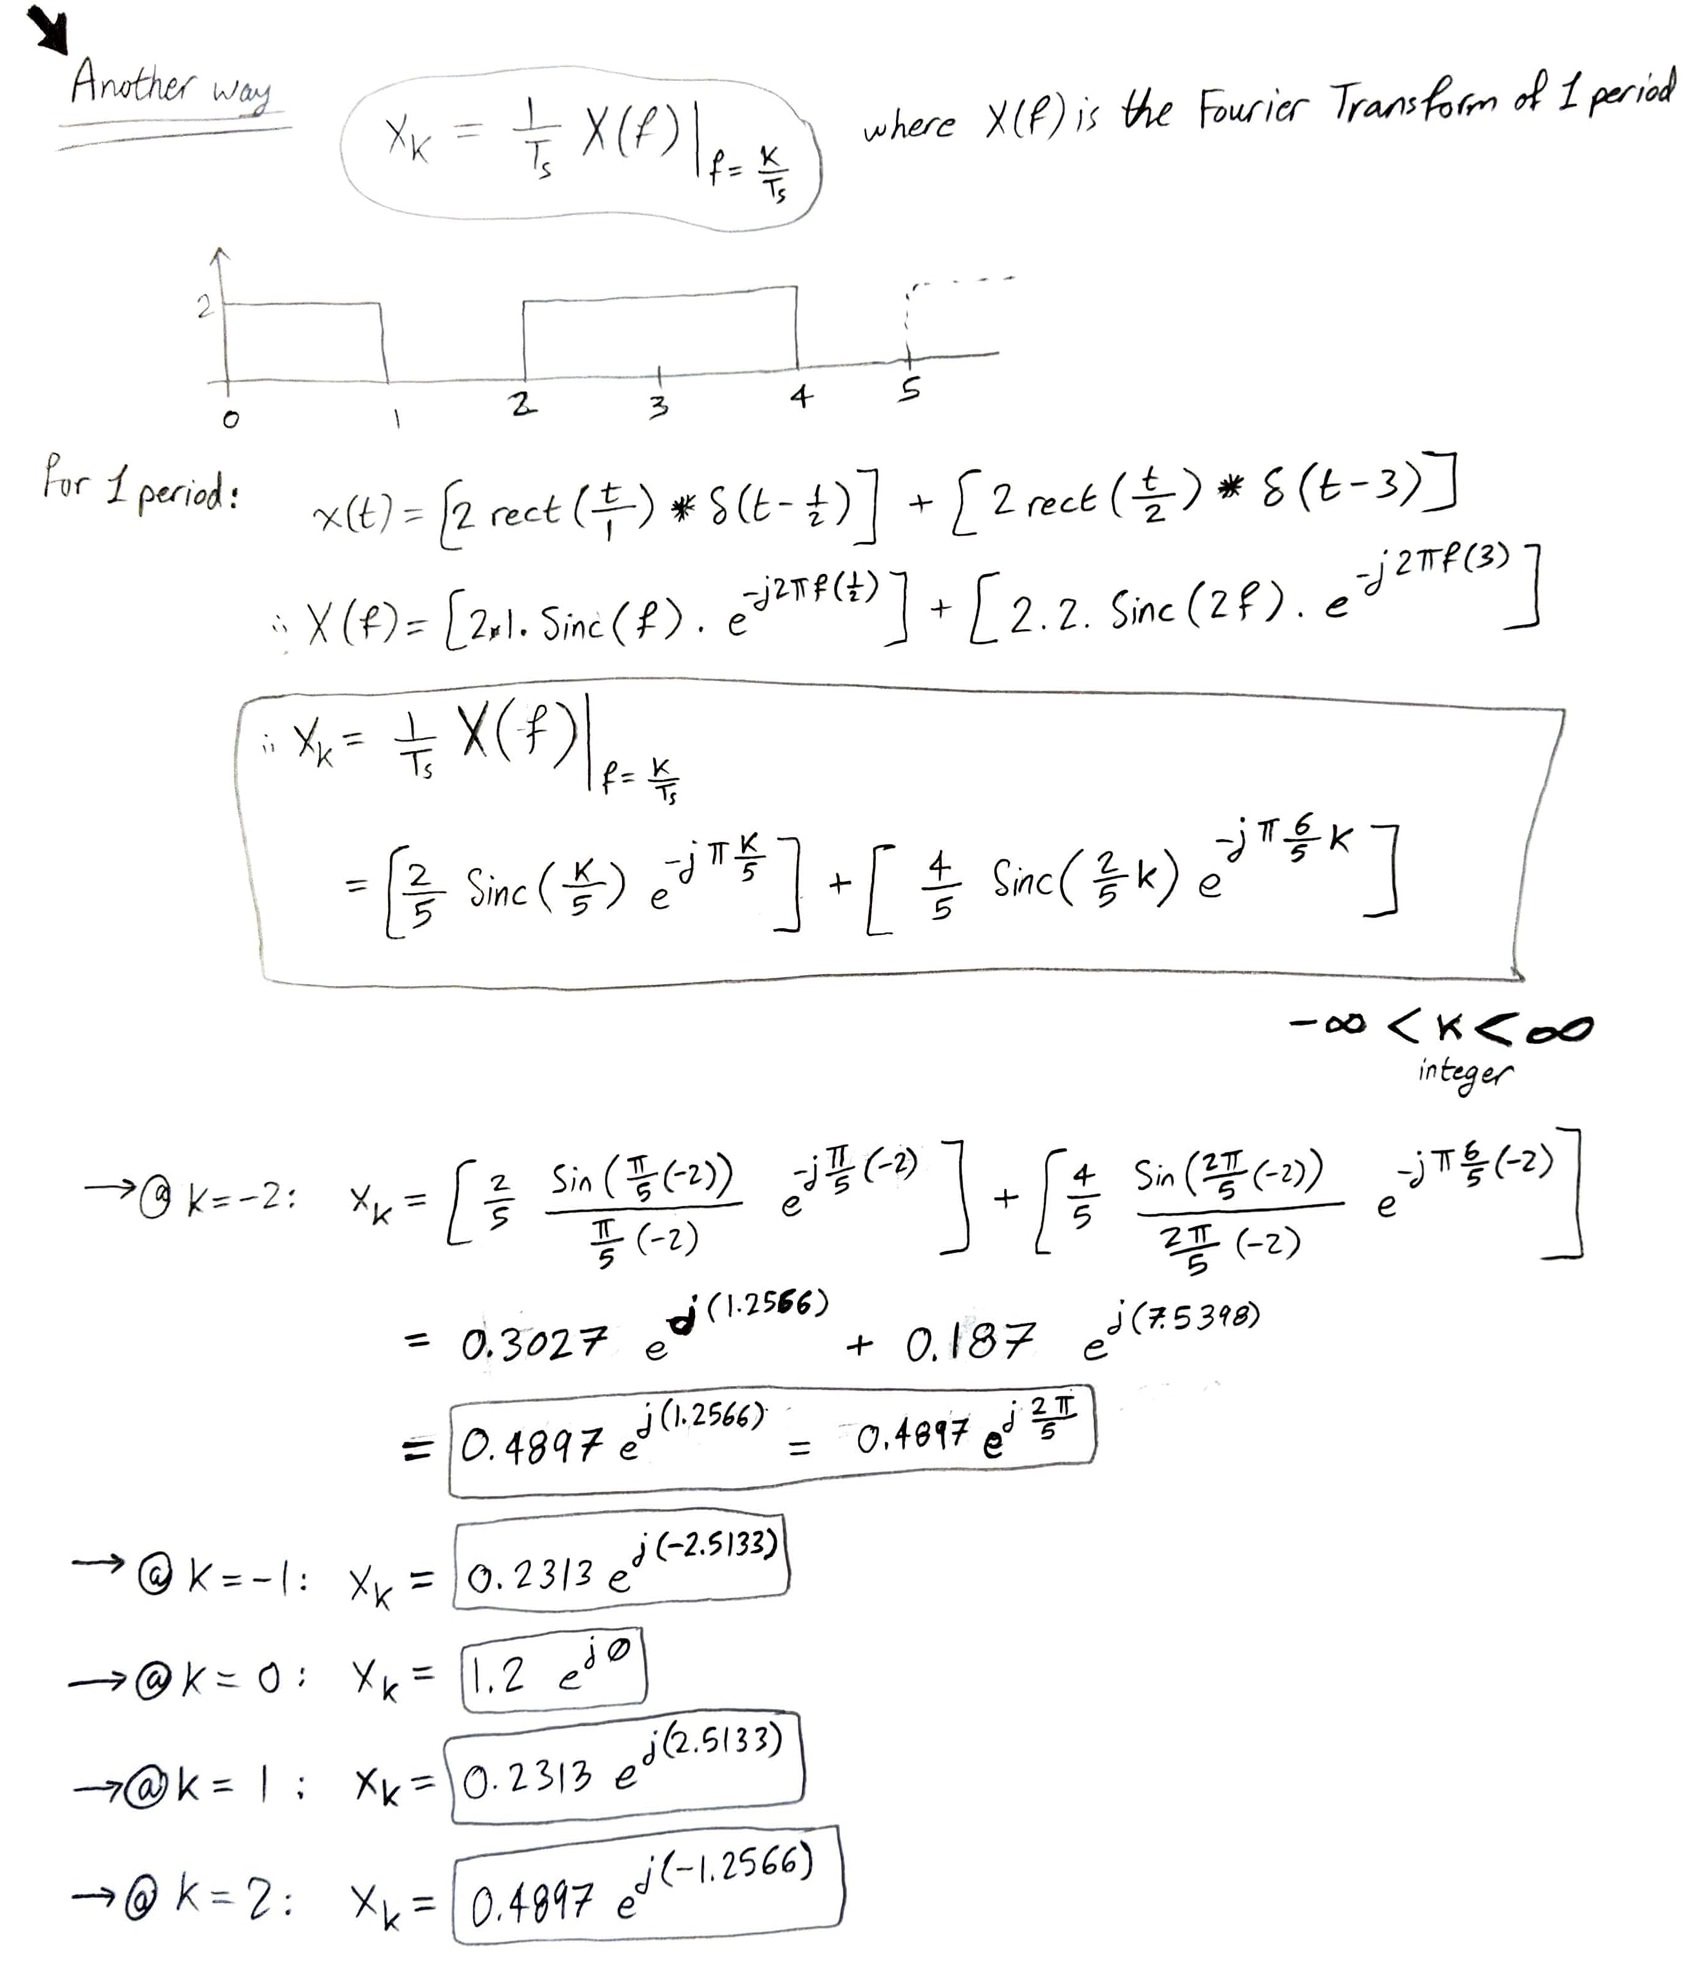 Another way
X_K = 1/T_s X(f)|_{f = K/T_s} where X(f) is the Fourier Transform of 1 period
2
0 1 2 3 4 5
for 1 period: x(t) = [2 rect(t/1) * δ(t-1/2)] + [2 rect(t/2) * δ(t-3)]
∴ X(f) = [2×1. Sinc(f) . e^{-j2πf(1/2)}] + [2.2. Sinc(2f). e^{-j2πf(3)}]
∴ X_K = 1/T_s X(f)|_{f = K/T_s}
= [2/5 Sinc(K/5) e^{-jπ K/5}] + [4/5 Sinc(2/5 K) e^{-jπ 6/5 K}]
-∞ < K < ∞
integer
→ @ K=-2: X_K = [2/5 Sin(π/5(-2))/(π/5(-2)) e^{-jπ/5(-2)}] + [4/5 Sin(2π/5(-2))/(2π/5(-2)) e^{-jπ6/5(-2)}]
= 0.3027 e^{j(1.2566)} + 0.187 e^{j(7.5398)}
= 0.4897 e^{j(1.2566)} = 0.4897 e^{j 2π/5}
→ @ K=-1: X_K = 0.2313 e^{j(-2.5133)}
→ @ K = 0: X_K = 1.2 e^{j0}
→ @ K = 1: X_K = 0.2313 e^{j(2.5133)}
→ @ K = 2: X_K = 0.4897 e^{j(-1.2566)}